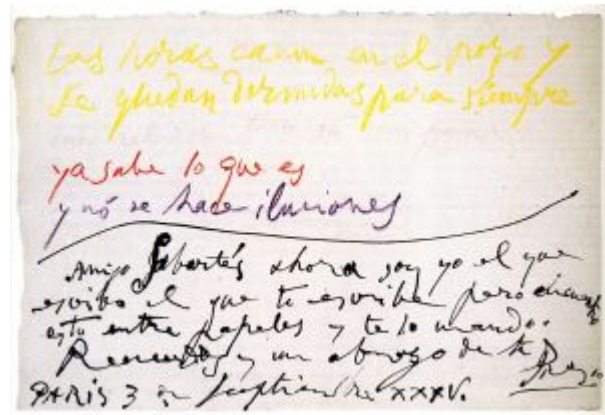 Las horas caen en el pozo y
se quedan dormidas para siempre
ya sabe lo que es
y no se hace iluciones
Amigo Sabartés ahora soy yo el que
escribo el que te escribe pero encuentro
esto entre papeles y te lo mando.
Recuerdos y un abrazo de tu
PARIS 3 de Septiembre XXXV.